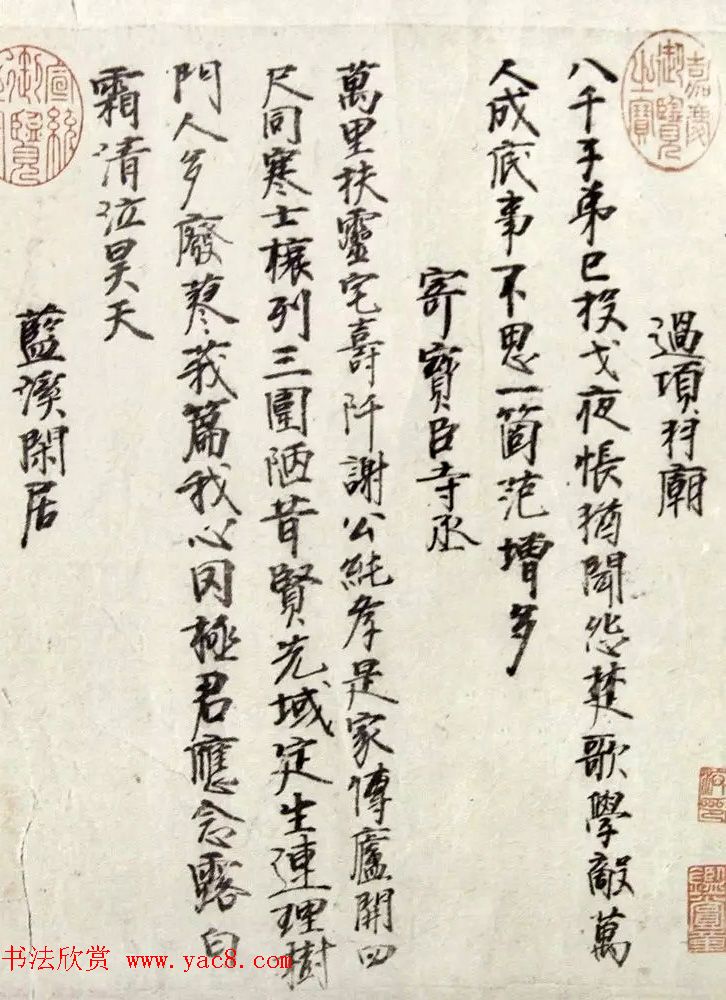 嘉慶御覽之寶
過項羽廟
八千子弟已投戈夜帳猶聞怨楚歌學敵萬
人成底事不思一箇范增多
寄寶臣寺丞
萬里扶靈宅壽阡謝公純孝是家傳廬開四
尺同寒士列三圍陋昔賢先域定生連理樹
門人多廢蓼莪篇我心罔極君應念露白
霜清泣昊天
藍溪閑居
宣統御覽
书法欣赏 www.yac8.com